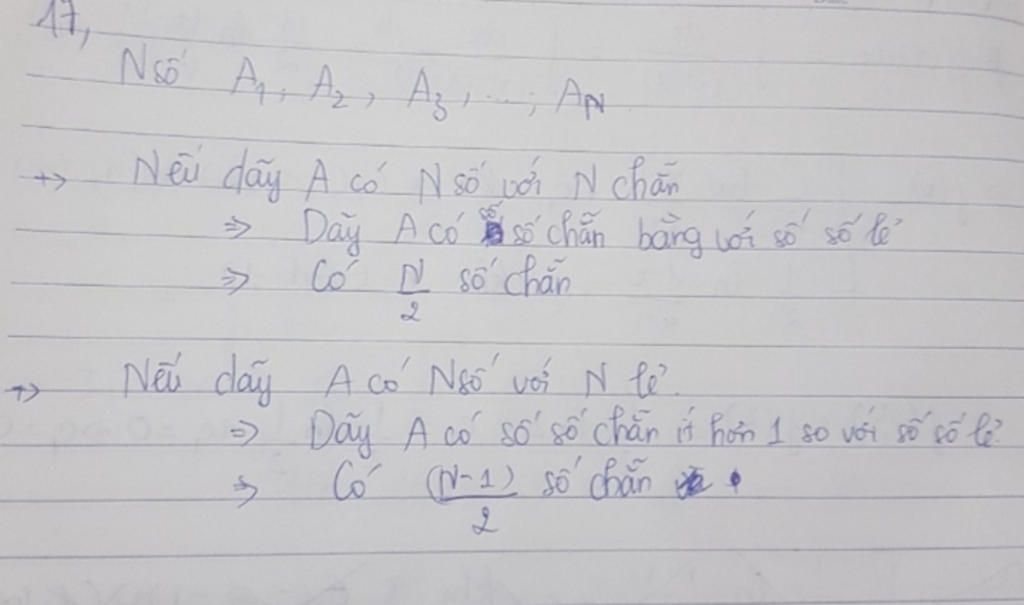 17,
N số A1, A2, A3, ...., AN
+> Nếu dãy A có N số với N chẵn
=> Dãy A có số số chẵn bằng với số số lẻ
=> Có N/2 số chẵn
+> Nếu dãy A có N số với N lẻ.
=> Dãy A có số số chẵn ít hơn 1 so với số số lẻ.
=> Có (N-1)/2 số chẵn